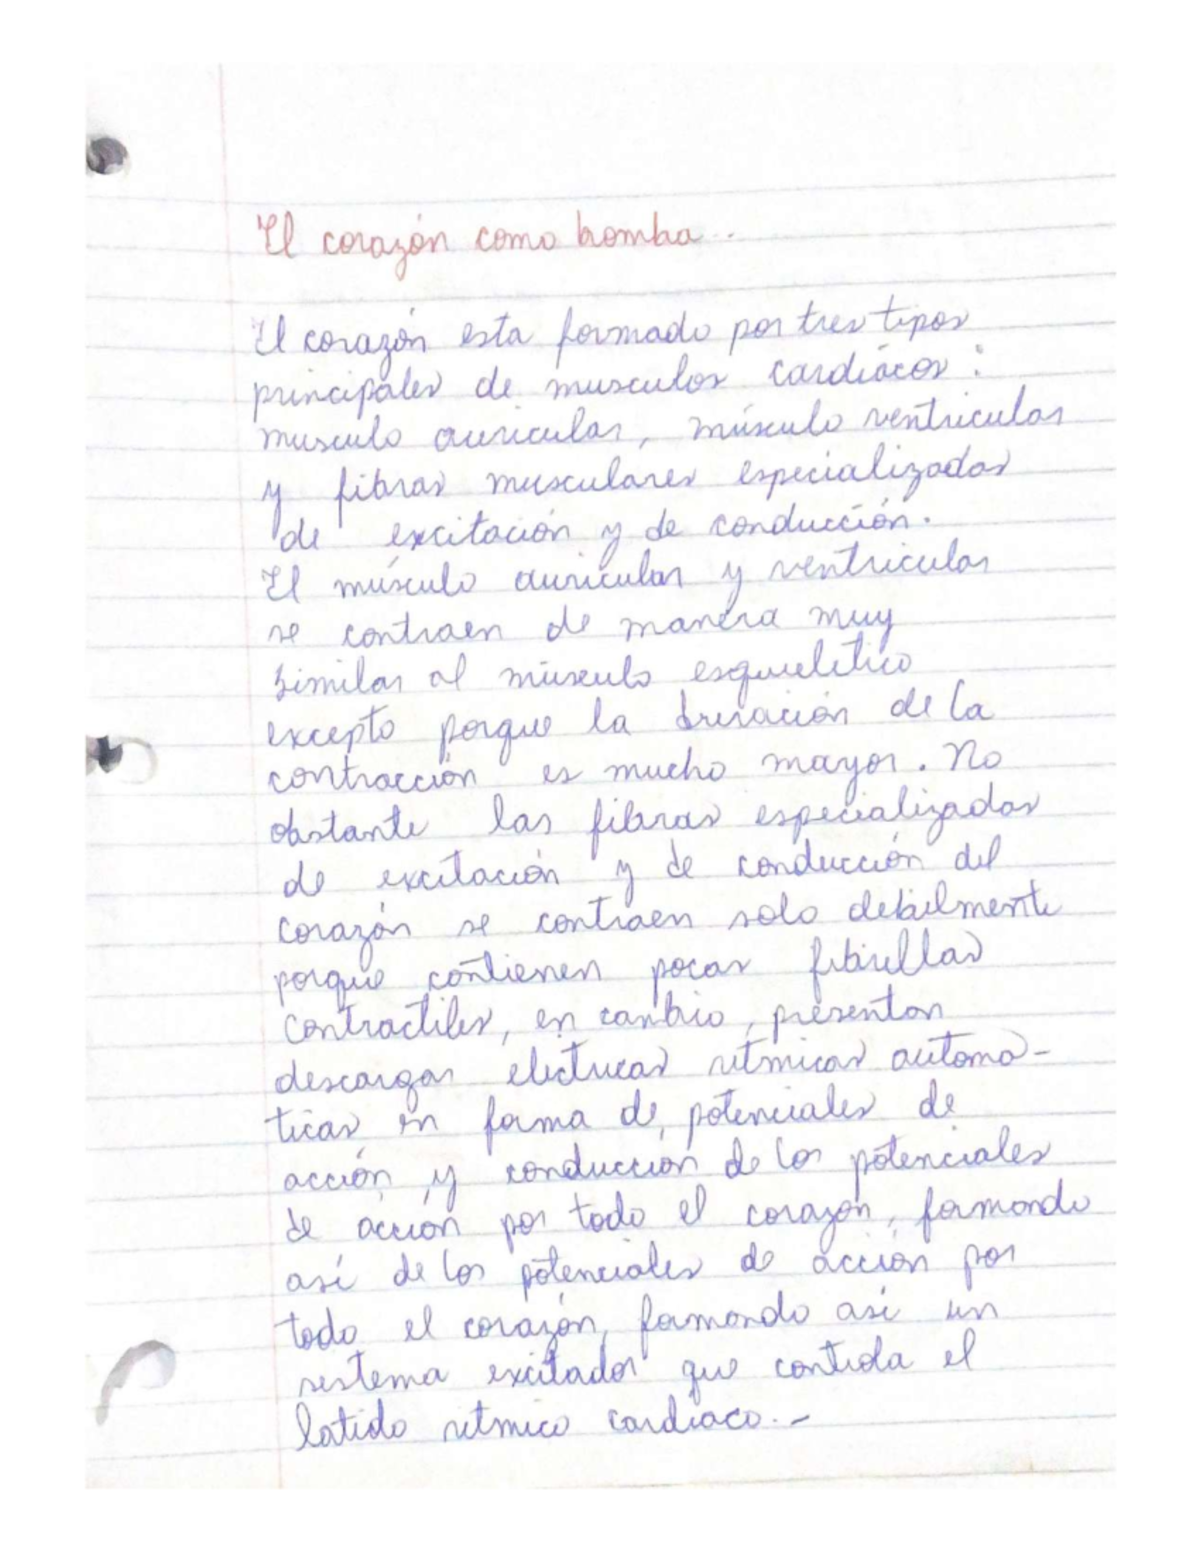 El corazón como bomba..
El corazón esta formado por tres tipos
principales de musculos cardiácos:
musculo auricular, músculo ventricular
y fibras musculares especializadas
de excitación y de conducción.
El músculo auricular y ventricular
se contraen de manera muy
similar al músculo esquelético
excepto porque la duración de la
contracción es mucho mayor. No
obstante las fibras especializadas
de excitación y de conducción del
corazón se contraen solo debilmente
porque contienen pocas fibrillas
contractiles, en cambio, presentan
descargas electricas ritmicas automa-
ticas en forma de potenciales de
acción y conducción de los potenciales
de acción por todo el corazón, formando
así de los potenciales de acción por
todo el corazón, formando así un
sistema excitador que controla el
latido ritmico cardiaco.-